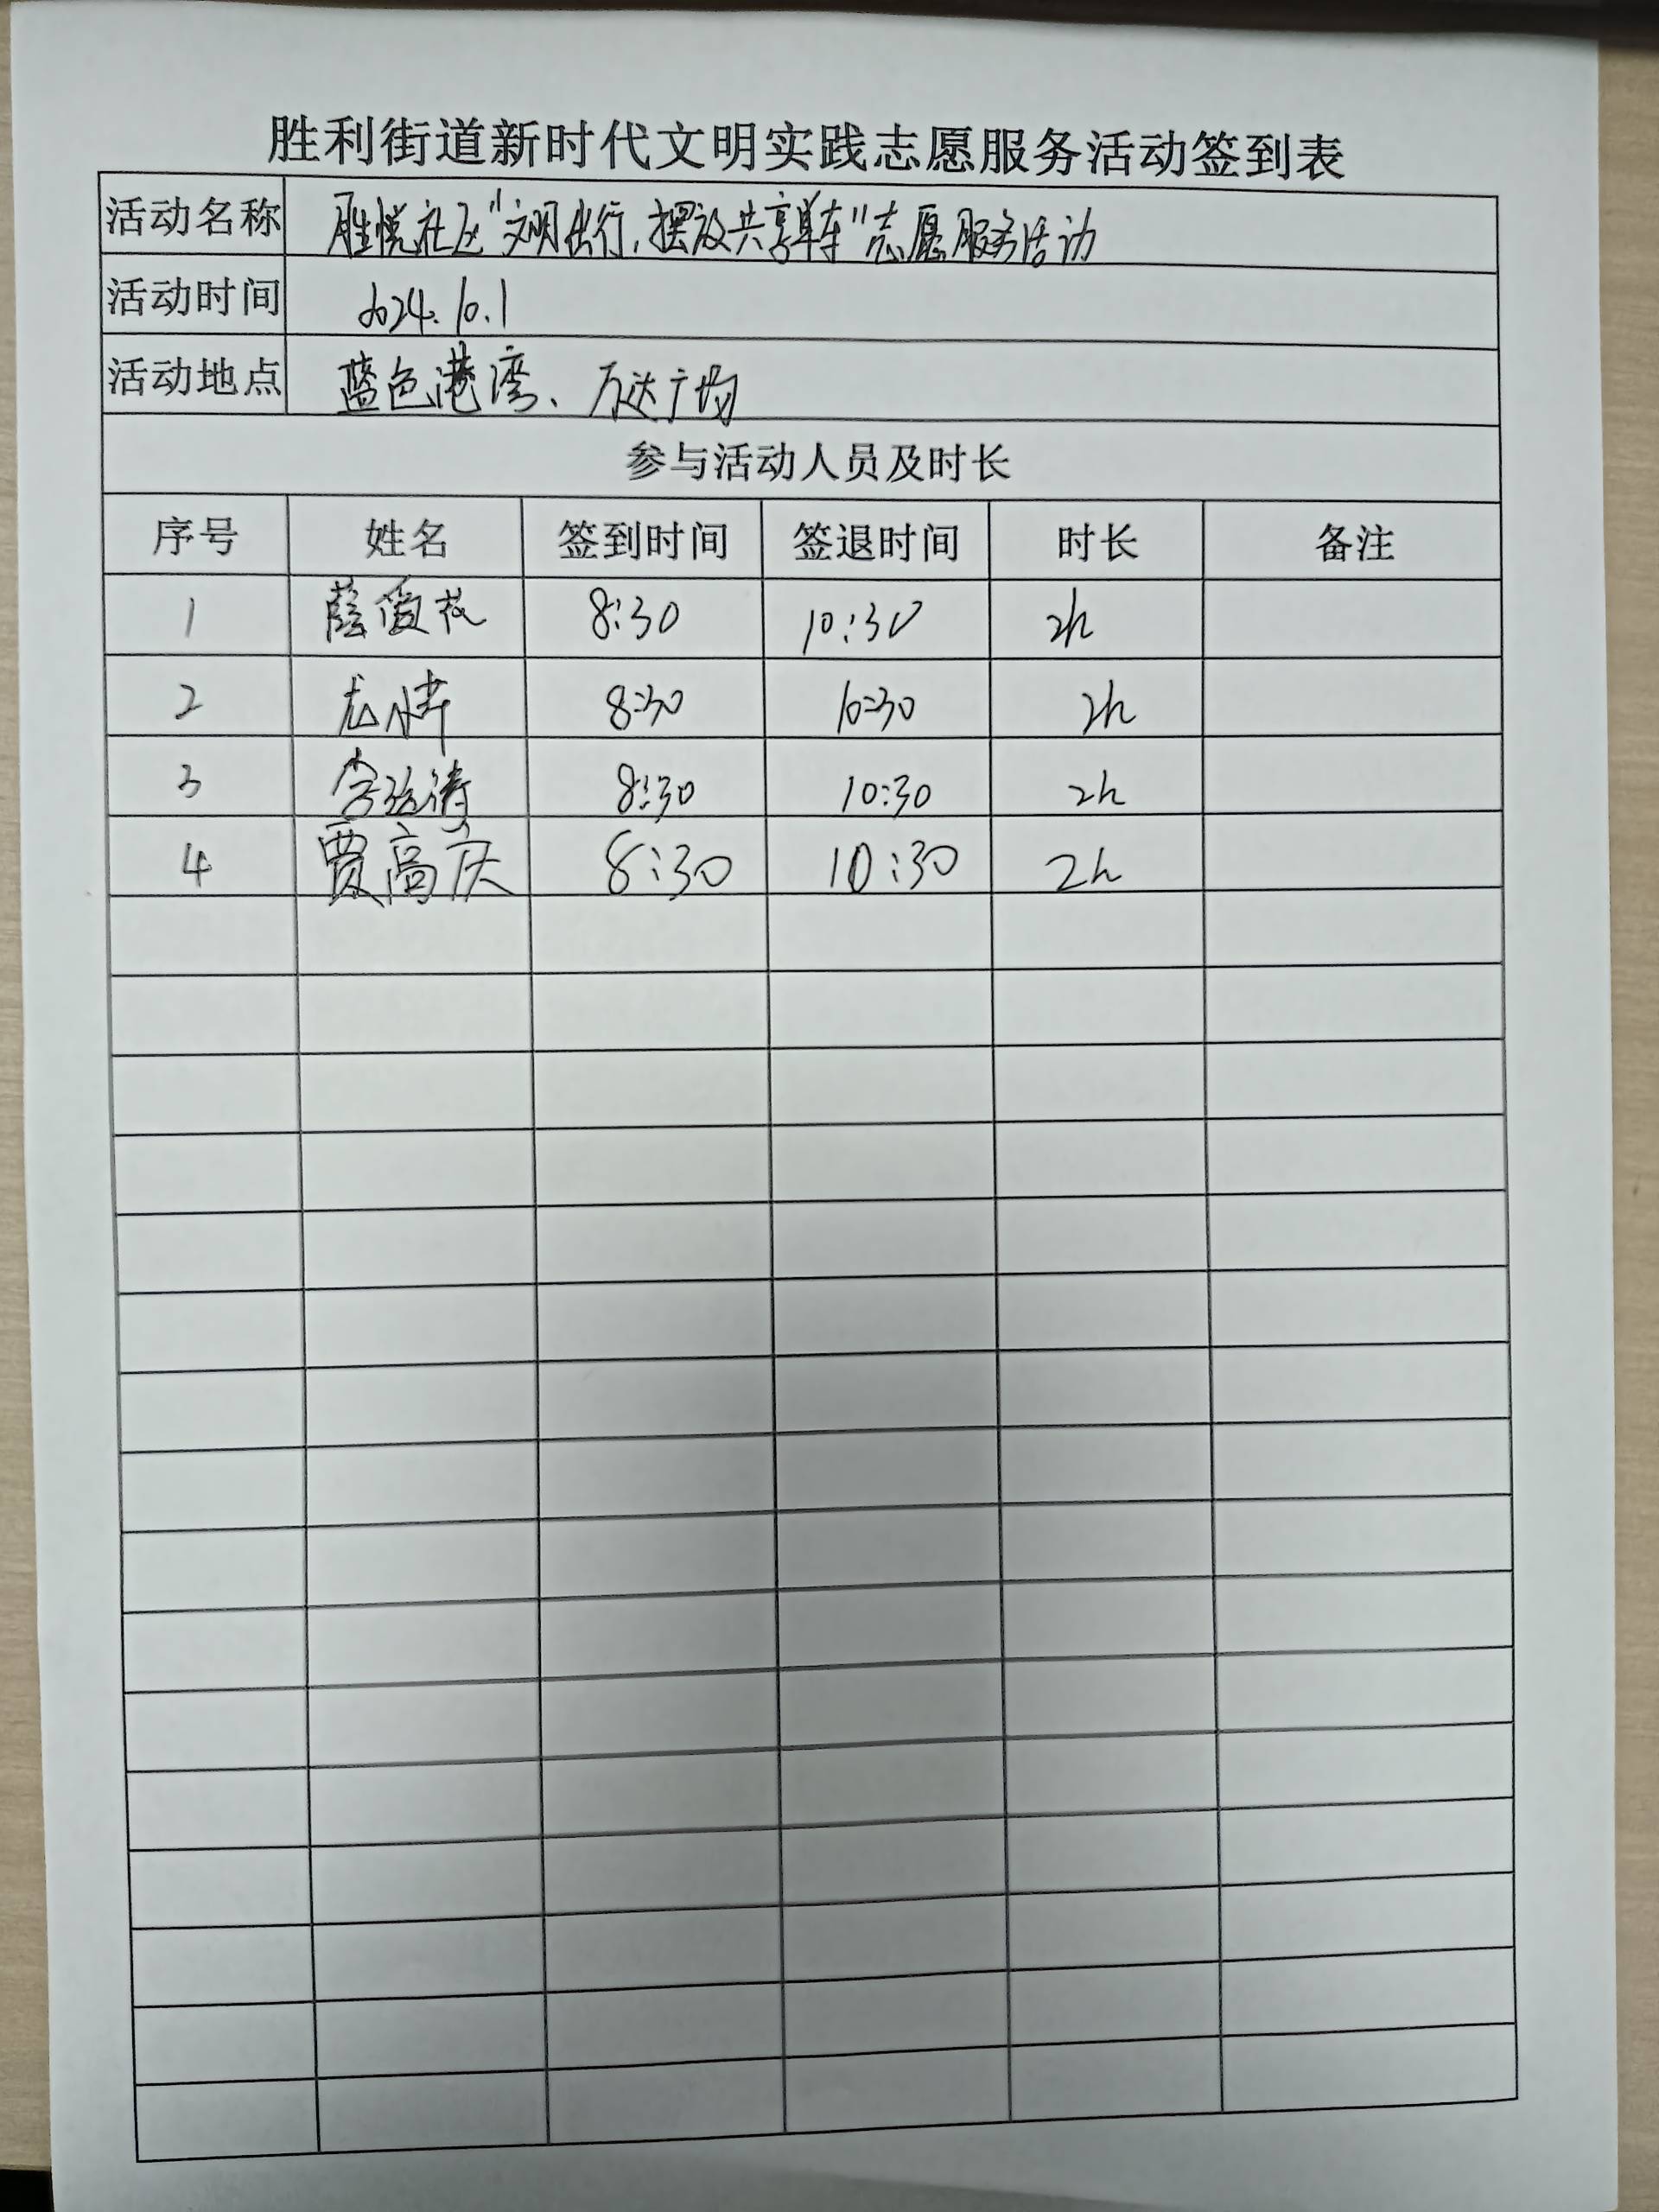 胜利街道新时代文明实践志愿服务活动签到表
活动名称 胜悦社区"文明出行,摆放共享单车"志愿服务活动
活动时间 2024.10.1
活动地点 蓝色港湾、万达广场
参与活动人员及时长
序号 姓名 签到时间 签退时间 时长 备注
1 薛爱花 8:30 10:30 2h
2 尤炜 8:30 10:30 2h
3 李 涛 8:30 10:30 2h
4 贾高庆 8:30 10:30 2h